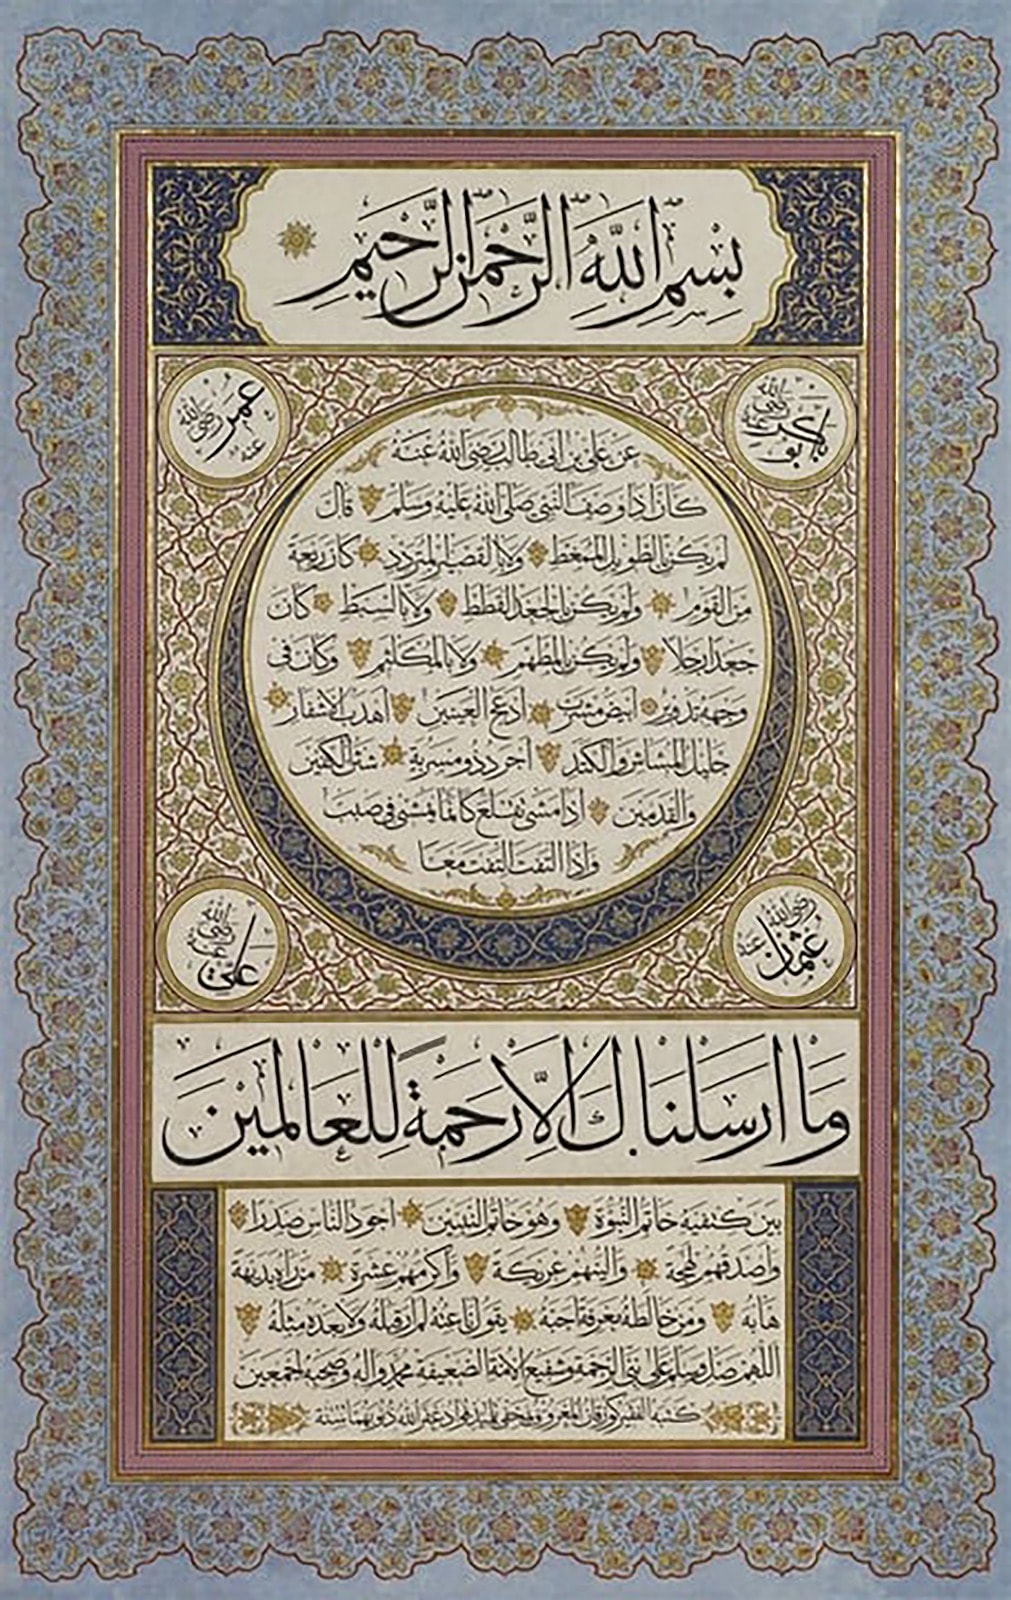 بِسْمِ اللّٰهِ الرَّحْمٰنِ الرَّحِيمِ
ابو بكر رضي الله عنه
عمر رضي الله عنه
عن علي بن ابي طالب رضي الله عنه
كان اذا وصف النبي صلى الله عليه وسلم قال
لم يكن بالطويل الممغط ولا بالقصير المتردد كان ربعة
من القوم ولم يكن بالجعد القطط ولا بالسبط كان
جعدا رجلا ولم يكن بالمطهم ولا بالمكلثم وكان في
وجهه تدوير ابيض مشرب ادعج العينين اهدب الاشفار
جليل المشاش والكتد اجرد ذو مسربة شثن الكفين
والقدمين اذا مشى تقلع كانما يمشي في صبب
واذا التفت التفت معا
عثمان رضي الله عنه
علي رضي الله عنه
وما ارسلناك الا رحمة للعالمين
بين كتفيه خاتم النبوة وهو خاتم النبيين اجود الناس صدرا
واصدقهم لهجة والينهم عريكة واكرمهم عشرة من راه بديهة
هابه ومن خالطه معرفة احبه يقول ناعته لم ار قبله ولا بعده مثله
اللهم صل وسلم على نبي الرحمة وشفيع الامة الضعيفة محمد واله وصحبه اجمعين
كتبه الفقير المعروف غفر الله ذنوبهما سنة